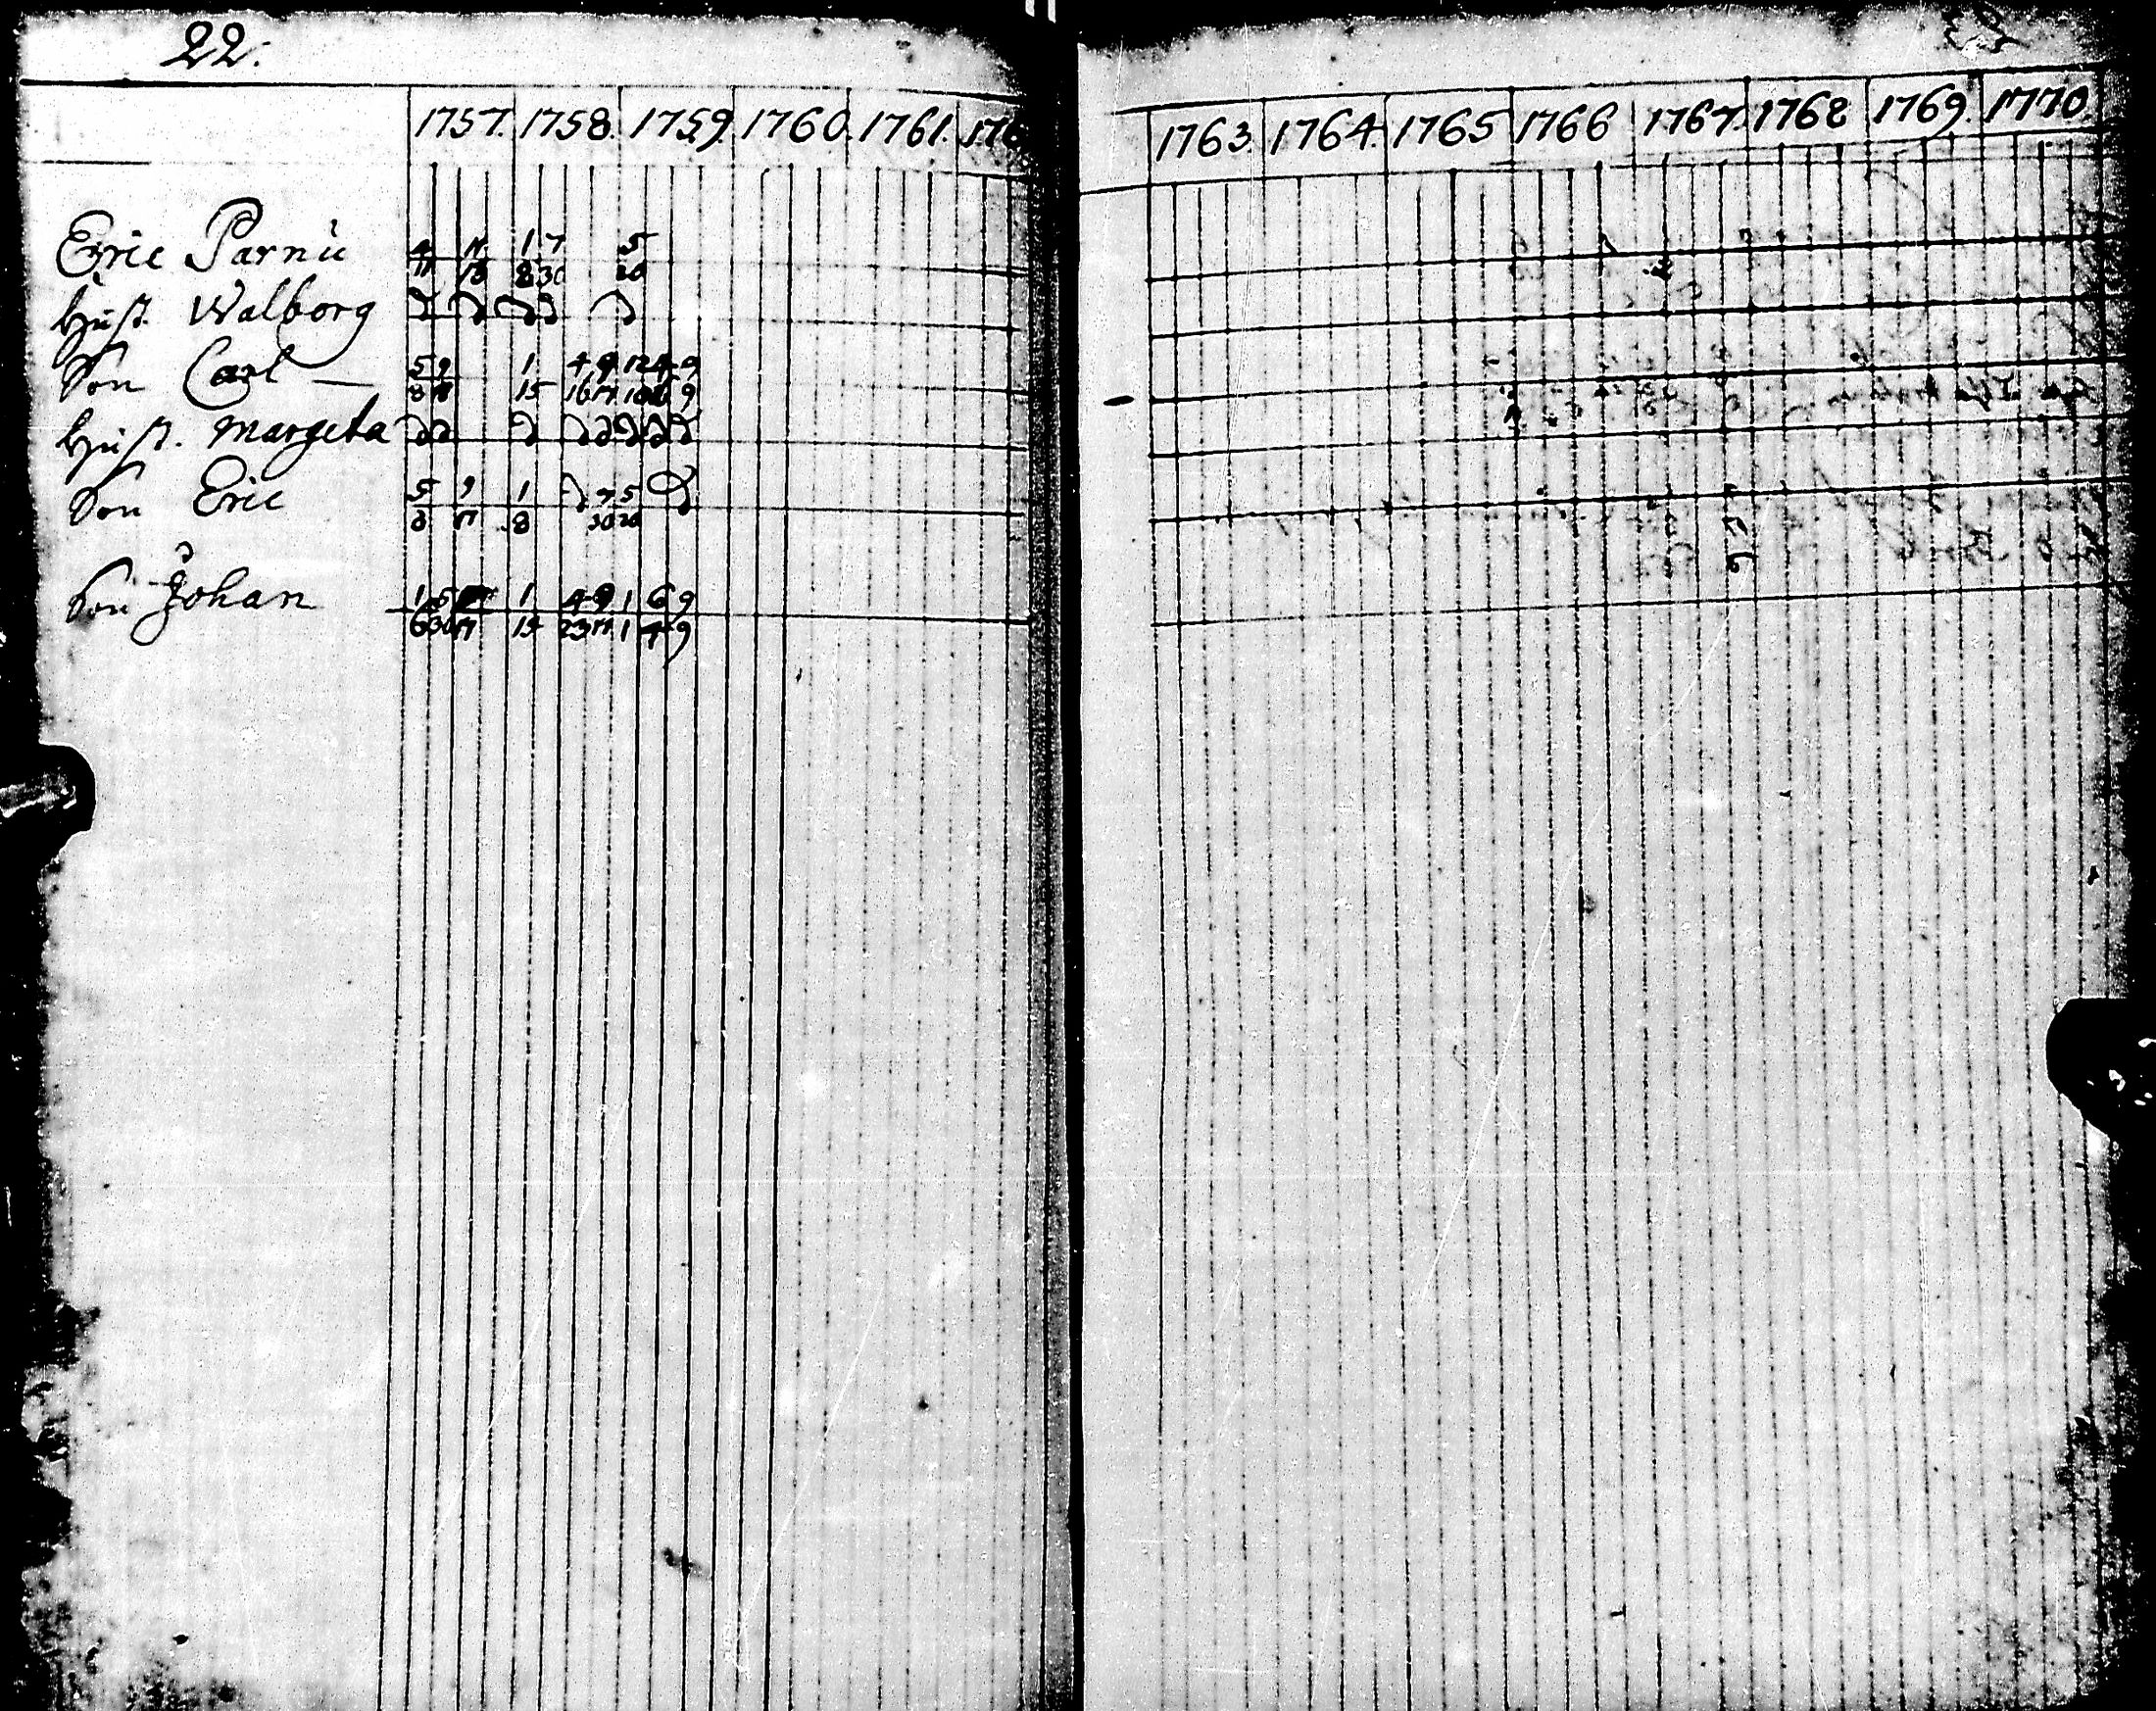 22.
1757. 1758. 1759. 1760. 1761. 176
1763. 1764. 1765 1766 1767. 1768 1769. 1770
Eric Parnu
1 7 5
8 30 20
Hust. Walborg
Son Carl —
5 9 1 4 9 12 4 9
15 16 17 9
Hust. Margeta
Son Eric
5 9 1 7 5
8 17 8 30 20
Son Johan
1 5 1 4 9 1 6 9
6 30 17 15 23 17 1 4 9